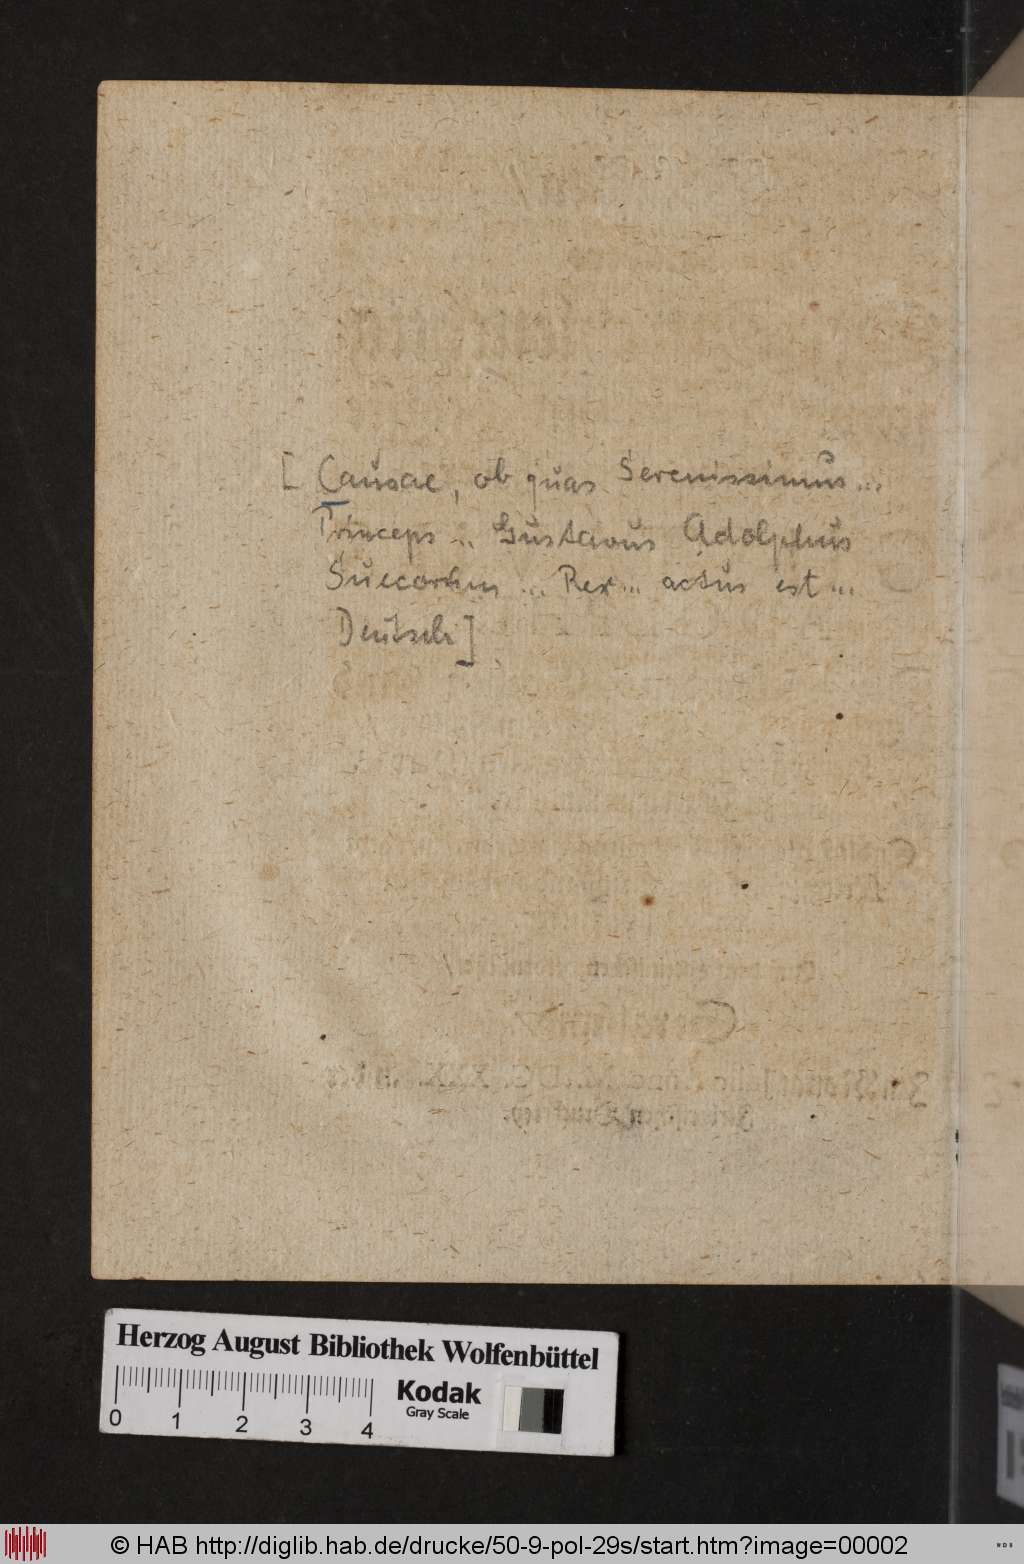 [ Causae, ob quas Serenissimus...
Princeps .. Gustavus Adolphus
Suecorum ... Rex ... actus est ...
Deutsch ]
Herzog August Bibliothek Wolfenbüttel
Kodak
Gray Scale
0 1 2 3 4
© HAB http://diglib.hab.de/drucke/50-9-pol-29s/start.htm?image=00002